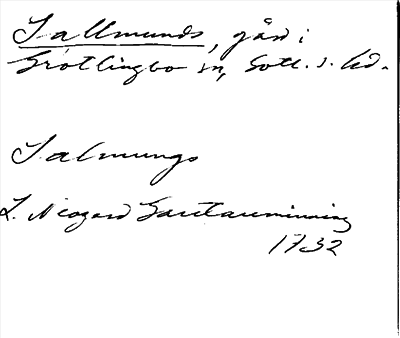 Sallmunds, gård i
Grötlingbo sn, Gotl. s. hd.
Salmungs
L. Neogard Gautauminning
1732